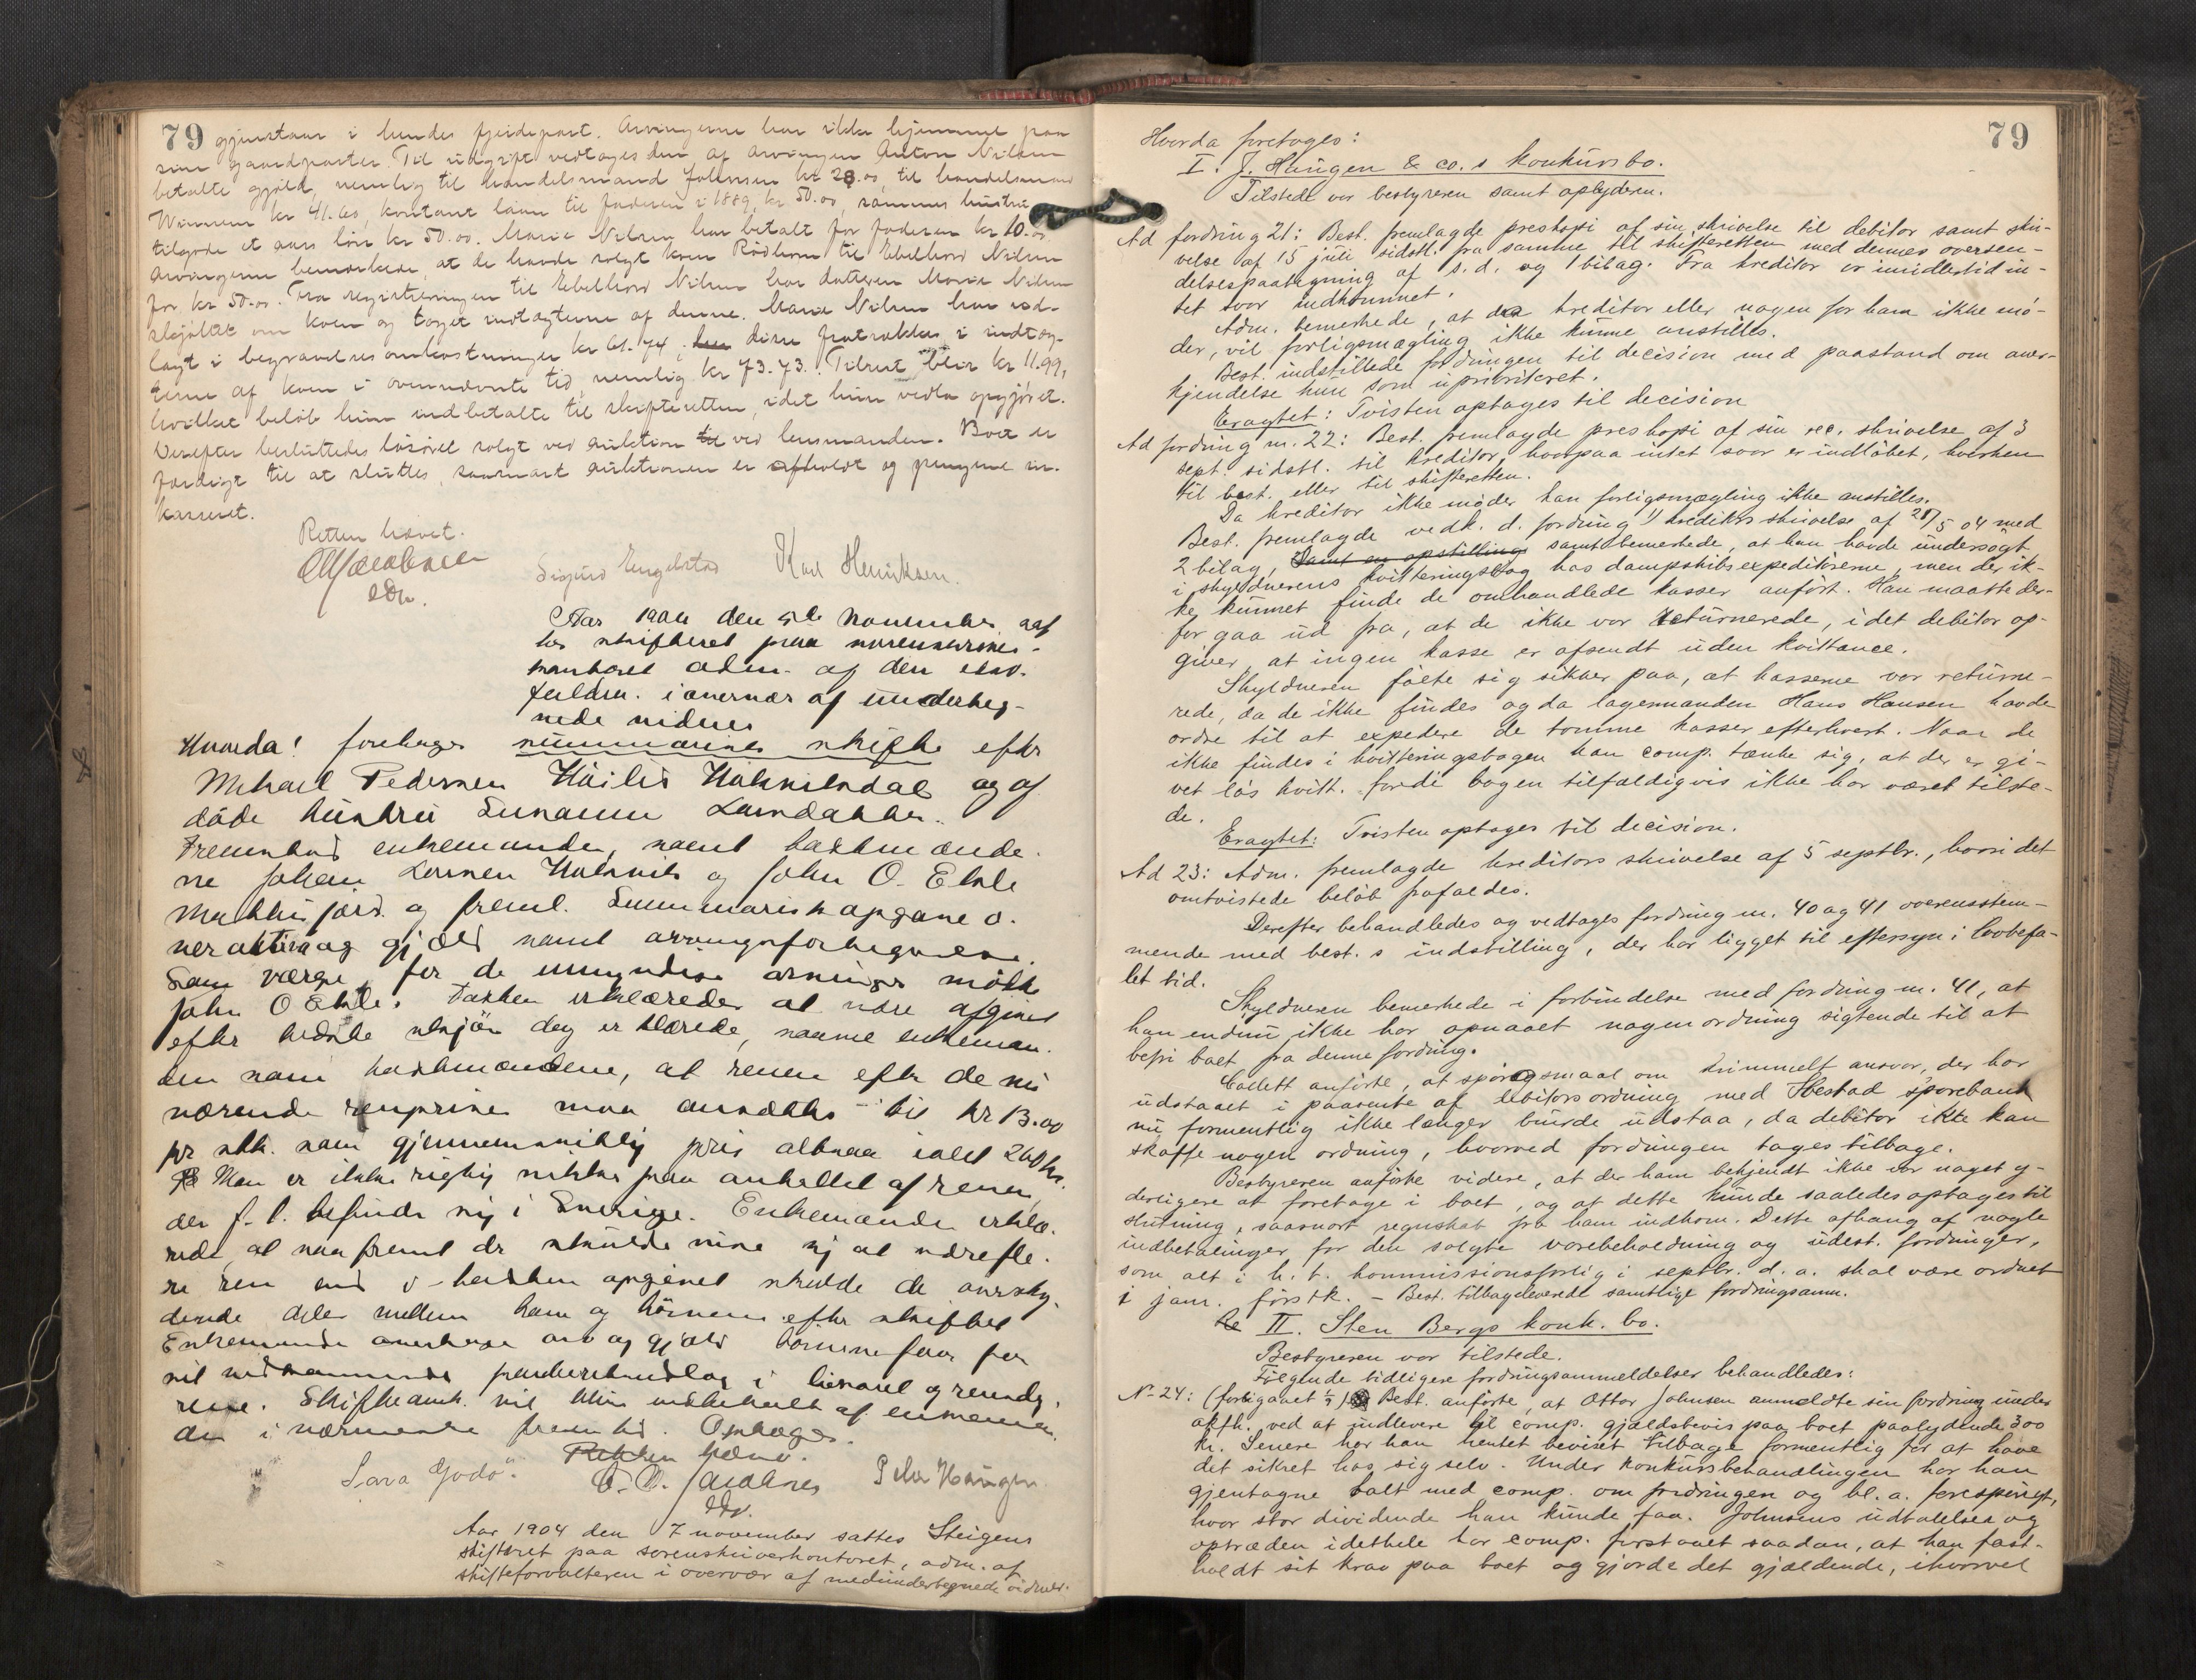 79
gjenstaar i hendes fjerdepart. Arvingerne har ikke hjemmel paa
sine gaardparter. Til udgift vedtages den af arvingen Anton Nilsen
betalte gjæld, nemlig til handelsmand Johnsen kr 28.00, til handelsmand
kr 41.60, kontant laan til faderen i 1889, kr 50.00, sammes hustru
tilgode et aars løn kr 50.00. Marie Nilsen har betalt for faderen kr 10.00
Arvingerne bemærkede, at de havde solgt koen Rødhorn til Ebelhard Nilsen
for kr 50.00. Fra registreringen til Ebelhard Nilsen har datteren Marie Nilsen
skjøttet om koen og taget indtægterne af denne. Marie Nilsen har ud-
lagt i begravelsesomkostninger kr 61.74, disse fratrækkes i indtæg-
terne af koen i ovennævnte tid, nemlig kr 73.73. Tilrest blir kr 11.99,
hvilket beløb hun indbetalte til skifteretten, idet hun vedtog opgjøret.
Derefter besluttedes løsøret solgt ved auktion ved lensmanden. Boet er
færdigt til at sluttes, saasnart auktionen er afholdt og pengene in-
kasseret.
Retten hævet.
Jacobsen
edv.
Sigurd Engelstad Karl Henriksen.
Aar 1904 den 5te november sat
tes skifteret paa sorenskriver-
kontoret adm. af den edsv.
fuldm. i overvær af underteg-
nede vidner
Hvorda! foretages summarisk skifte efter
Mikael Pedersen og af
døde hustru Susanne Larsdatter.
Fremstod enkemanden, samt takstmænde-
ne Johan Larsen og John O.
og freml. Summarisk opgave o-
ver aktiva og gjæld samt arvingsfortegnelse.
Som værge for de umyndige arvinger mødte
John O Taksten erklæredes at være afgivet
efter bedste skjøn og erklærede, saavel enkeman-
den som takstmændene, at renen efter de nu
værende renpriser maa ansættes til kr 13.00
pr stk. som gjennemsnitlig pris altsaa ialt 260 kr.
Man er ikke rigtig sikker paa antallet af rener,
der f. t. befinder sig i Sverige. Enkemanden erklæ-
rede, at saafremt der skulde vise sig at være fle-
re ren end i taksten opgivet skulde de oversky-
dende deles mellem ham og børnene efter skiftet
Enkemanden overtager arv og gjæld børnene faar for
sit vedkommende panterethandlag i løsøret og rensdy-
rene. Skifteomk. vil blive indbetalt af enkeman-
den i nærmeste fremtid. Optages.
Retten hævet.
Sara Godø. O. O. Jacobsen Peder Haugen
edv.
Aar 1904 den 7 november sattes Steigens
skifteret paa sorenskriverkontoret, adm. af
skifteforvalteren i overvær af medundertegnede vidner.
79
Hvorda foretoges:
I. J. Haugen & co.s konkursbo.
Tilstede var bestyreren samt opbyderen.
Ad fordring 21: Best. fremlagde preskopi af sin skrivelse til debitor samt skri-
velse af 15 juli sidstl. fra samme til skifteretten med dennes oversen-
delsespaategning af s.d. og 1 bilag. Fra kreditor er imidlertid in-
tet svar indkommet.
Adm. bemerkede, at da kreditor eller nogen for ham ikke mø-
der, vil forligsmægling ikke kunne anstilles.
Best. indstillede fordringen til decision med paastand om aner-
kjendelse kun som uprioriteret.
Eragtet: Tvisten optages til decision
Ad fordring nr. 22: Best. fremlagde preskopi af sin rec. skrivelse af 3
sept. sidstl. til kreditor, hvorpaa intet svar er indløbet, hverken
til best. eller til skifteretten.
Da kreditor ikke møder kan forligsmægling ikke anstilles.
Best. fremlagde vedk. d. fordring 1) kreditors skrivelse af 28/5 04 med
2 bilag, samt en opstilling samt bemerkede, at han havde undersøgt
i skyldnerens kvitteringsbog hos dampskibsexpeditørerne, men der ik-
ke kunnet finde de omhandlede kasser anført. Han maatte der-
for gaa ud fra, at de ikke var returnerede, idet debitor op-
giver, at ingen kasse er afsendt uden kvittance.
Skyldneren følte sig sikker paa, at kasserne var returne-
rede, da de ikke findes og da lagermanden Hans Hansen havde
ordre til at expedere de tomme kasser efterhvert. Naar de
ikke findes i kvitteringsbogen kan comp. tænke sig, at der er gi-
vet løs kvitt. fordi bogen tilfældigvis ikke har været tilste-
de.
Eragtet: Tvisten optages til decision.
Ad 23: Adm. fremlagde kreditors skrivelse af 5 septbr., hvori det
omtvistede beløb frafaldes.
Derefter behandledes og vedtages fordring nr. 40 og 41 overensstem-
mende med best.s indstilling, der har ligget til eftersyn i lovbefa-
let tid.
Skyldneren bemerkede i forbindelse med fordring nr. 41, at
han endnu ikke har opnaaet nogen ordning sigtende til at
befri boet fra denne fordring.
Collett anførte, at spørgsmaal om kriminelt ansvar, der har
udstaaet i paavente af debitors ordning med Ibestad sparebank
nu formentlig ikke længer burde udstaa, da debitor ikke kan
skaffe nogen ordning, hvorved fordringen tages tilbage.
Bestyreren anførte videre, at der ham bekjendt ikke var noget y-
derligere at foretage i boet, og at dette kunde saaledes optages til
slutning, saasnart regnskab fra ham indkom. Dette afhang af nogle
indbetalinger for den solgte varebeholdning og udest. fordringer,
som alt i h. t. kommissionsforlig i septbr. d. a. skal være ordnet
i janr. førstk. – Best. tilbageleverede samtlige fordringsanm.
II. Sten Bergs konk. bo.
Bestyreren var tilstede.
Følgende tidligere fordringsanmeldelser behandledes:
No 24: Best. anførte, at Ottar Johnsen anmeldte sin fordring under
aktk. ved at indlevere til comp. gjældsbevis paa boet paalydende 300
kr. Senere har han hentet beviset tilbage formentlig for at have
det sikret hos sig selv. Under konkursbehandlingen har han
gjentagne talt med comp. om fordringen og bl. a. forespurgt,
hvor stor dividende han kunde faa. Johnsens udtalelser og
optræden idethele har comp. forstaaet saadan, at han fast-
holdt sit krav paa boet og gjorde det gjældende, ihvorvel